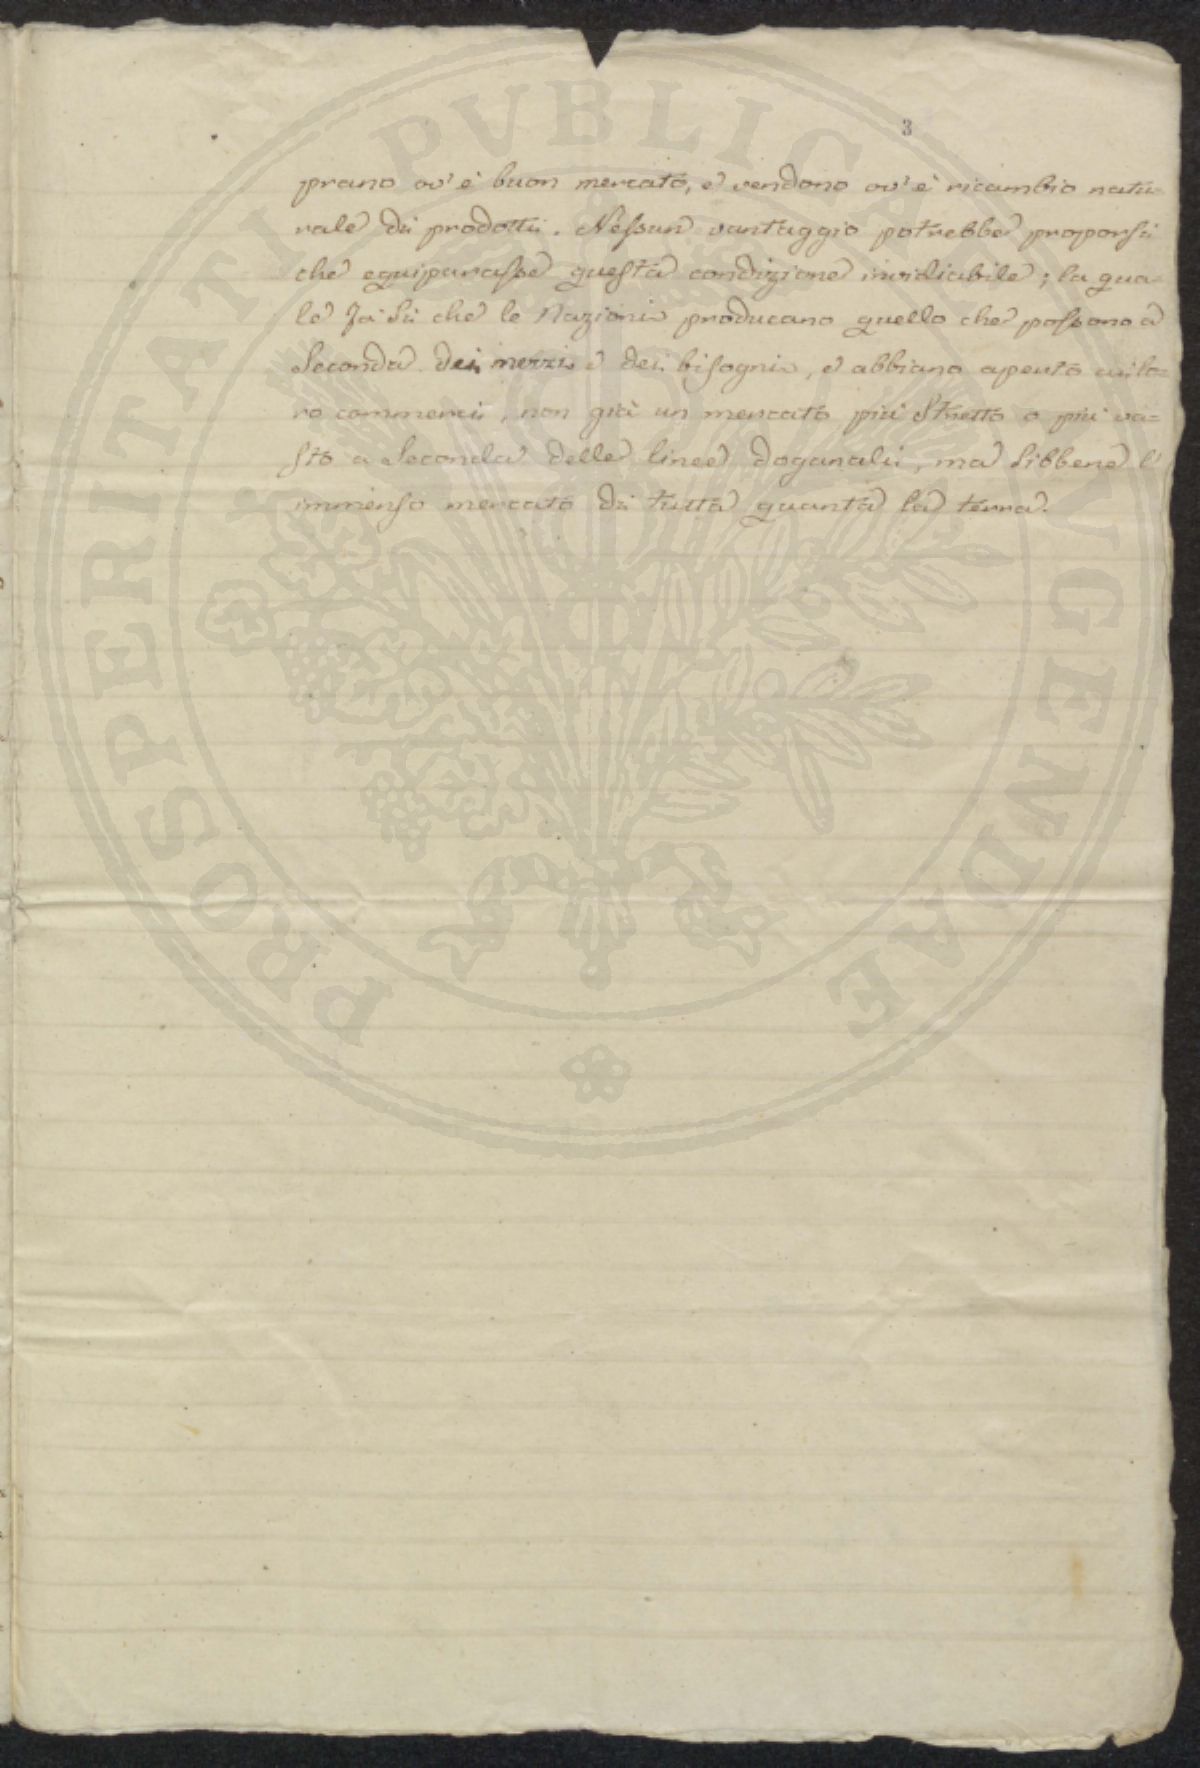 3
prano ov'è buon mercato, e vendono ov'è ricambio natu-
rale di prodotti. Nessun vantaggio potrebbe proporsi
che equiparasse questa condizione invidiabile; la qua-
le fa sì che le Nazioni producano quello che possono a
Seconda dei mezzi e dei bisogni, e abbiano aperto ai lo-
ro commerci, non già un mercato più Stretto o più va-
sto a Seconda delle linee doganali, ma sibbene l'
immenso mercato di tutta quanta la terra.
PROSPERITATI PVBLICAE AVGENDAE